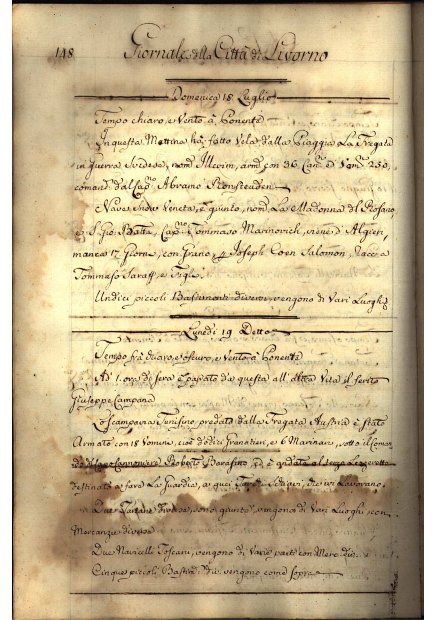 148 Giornale della Città di Livorno
Domenica 18 Luglio
Tempo chiaro, e Vento à Ponente
In questa Mattina hà fatto Vela dalla Piaggia La Fregata
in guerra Svedese, nom.ᵃ Illerim, arm.ᵃ con 36 Can.ⁿⁱ e 250,
comand.ᵃ dal Cap.º Abramo
Nave Snow Veneta, è giunto, nom.ᵃ La Madonna del Rosario,
e S. Gio: Batta, Cap.º Tommaso Marinovich, viene d'Algieri
manca 17 Giorni, con Grano, à Joseph Coen Salomon,
Tommaso Saraff, e Figli
Undici piccoli Bastimenti diversi, vengono di Vari Luoghi
Lunedì 19 Detto
Tempo frà chiaro, e oscuro, e Vento à Ponente
Ad 1. ora di sera è passato da questa all'altra Vita il ferito
Giuseppe Campana
Lo scampavia Tunisino, predato dalla Fregata Austria è stato
Armato con 18 Uomini, cioè dodici Granatieri, e 6 Marinari, sotto il Coman
do Cannoniere Roberto Barasino, è andata al terzo Lazeretto
destinato a fare La Guardia, a quei Schiavi, che ivi Lavorano,
Due Tartane diverse, sono giunte, vengono di Vari Luoghi, con
Mercanzie diverse
Due Navicelli Toscani, vengono di Varie parti con Merc. div.
Cinque piccoli Bastim. div. vengono come sopra